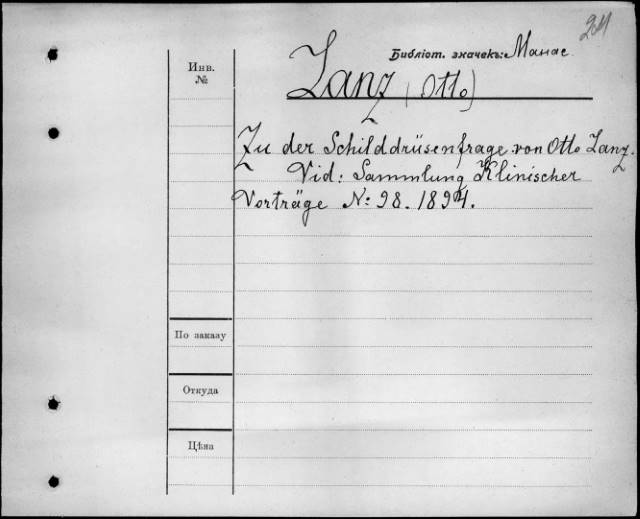 204
Библіот. значекъ: Манас
Инв.
№
Lanz (Otto)
Zu der Schilddrüsenfrage von Otto Lanz.
Vid: Sammlung Klinischer
Vorträge N: 98. 1894.
По заказу
Откуда
Цѣна